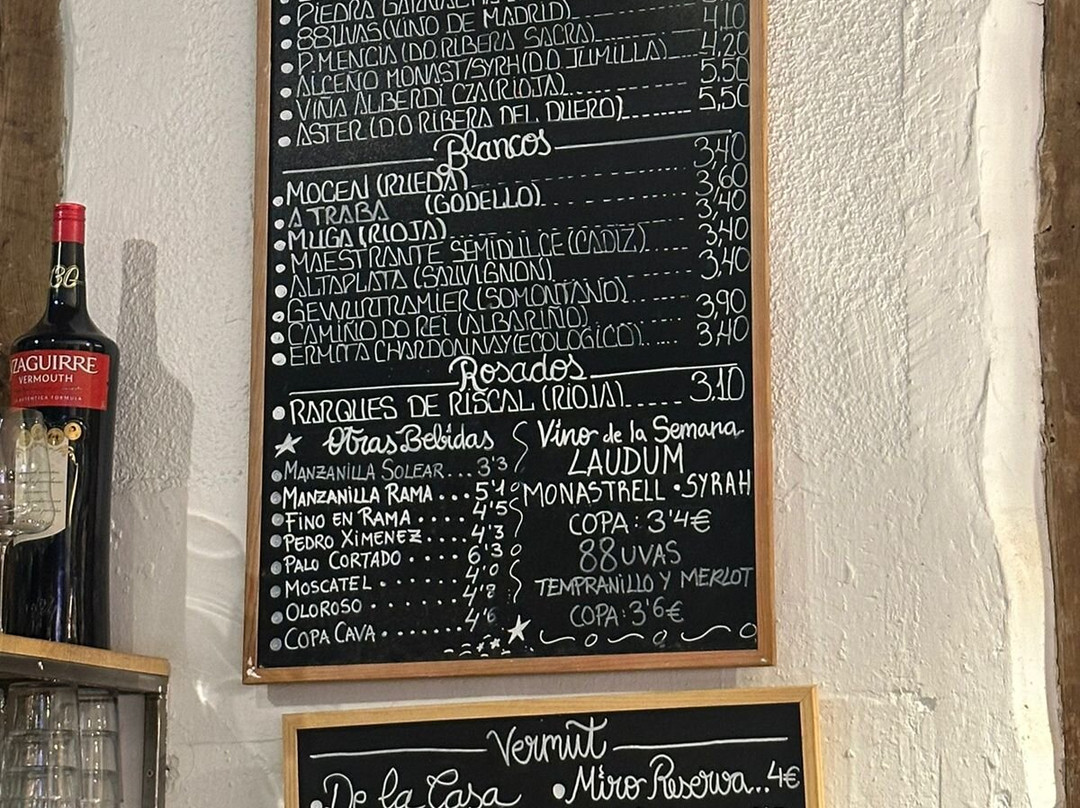 PIEDRA
88UVAS (VINO DE MADRID) 4,10
P.MENCIA (D.O. RIBERA SACRA)
ALCEÑO MONAST/SYRH (D.O JUMILLA) 4,20
VIÑA ALBERDI CZA (RIOJA) 5,50
ASTER (D.O RIBERA DEL DUERO) 5,50
Blancos
MOCEN (RUEDA) 3,40
A TRABA (GODELLO) 3,60
MUGA (RIOJA) 3,40
MAESTRANTE SEMIDULCE (CADIZ) 3,40
ALTAPLATA (SAUVIGNON) 3,40
GEWURTRAMIER (SOMONTANO)
CAMIÑO DO REI (ALBARIÑO) 3,90
ERMITA CHARDONNAY (ECOLOGICO) 3,40
Rosados
RARQUES DE RISCAL (RIOJA) 3,10
Otras Bebidas
MANZANILLA SOLEAR... 3'3
MANZANILLA RAMA... 5'1
FINO EN RAMA.... 4'5
PEDRO XIMENEZ.... 4'3
PALO CORTADO.... 6'3
MOSCATEL...... 4'0
OLOROSO...... 4'8
COPA CAVA...... 4'6
Vino de la Semana
LAUDUM
MONASTRELL • SYRAH
COPA: 3'4€
88UVAS
TEMPRANILLO Y MERLOT
COPA: 3'6€
Vermut
De la Casa
Miro Reserva.. 4€
ZAGUIRRE
VERMOUTH